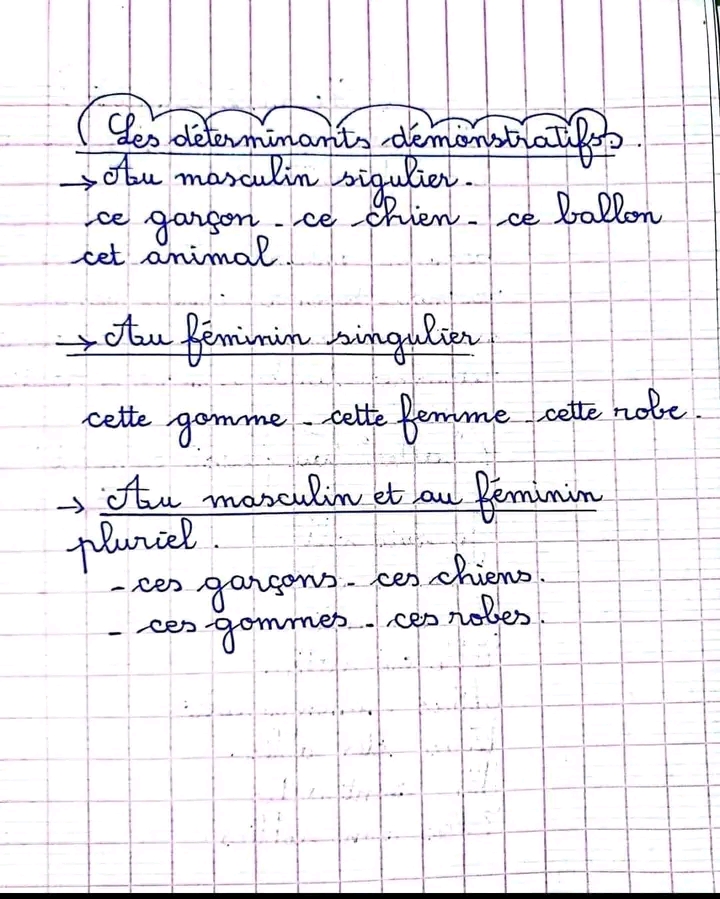 Les déterminants démonstratifs.
→ Au masculin sigulier.
ce garçon - ce chien - ce ballon
cet animal.
→ Au féminin singulier.
cette gomme - cette femme - cette robe.
→ Au masculin et au féminin
pluriel.
- ces garçons - ces chiens.
- ces gommes - ces robes.